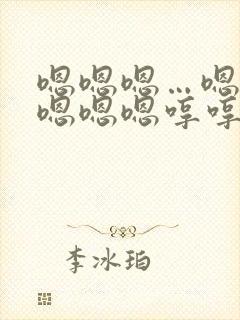 嗯嗯嗯…嗯
嗯嗯嗯哼哼
李冰珀